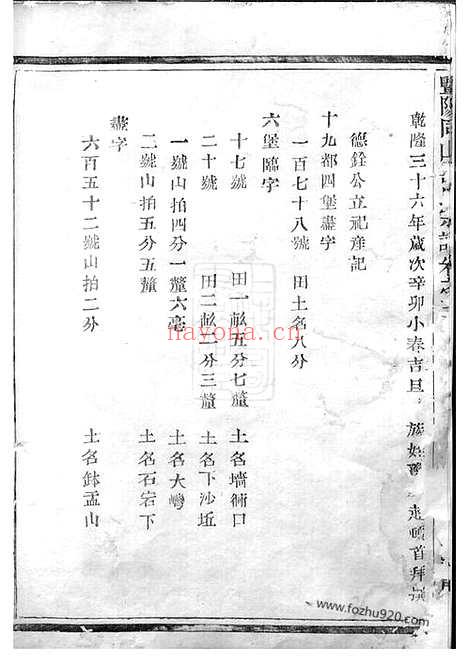 乾隆三十六年歲次辛卯小春吉旦 族姪 頓首拜
德銓公立祀產記
十九都四堡盡字
一百七十八號 田土名八分
六堡臨字
十七號 田一畝五分七釐 土名墻衕口
二十號 田二畝一分三釐 土名下沙坵
一號山拍四分一釐六毫 土名大灣
二號山拍五分五釐 土名石宕下
盡字
六百五十二號山拍二分 土名鉢盂山
nayona.cn
www.fozhu920.com